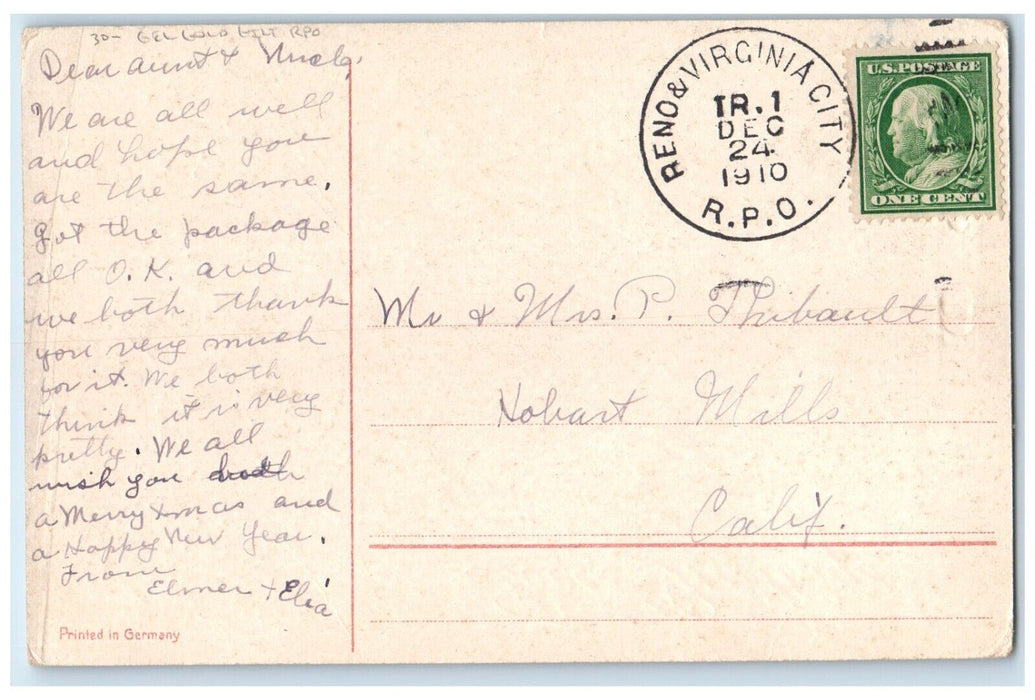 30- GEL GOLD GILT RPO
Dear Aunt & Uncle,
We are all well
and hope you
are the same.
got the package
all O.K. and
we both thank
you very much
for it. We both
think it is very
pretty. We all
wish you both
a Merry Xmas and
a Happy New Year.
From
Elmer +
Printed in Germany
RENO & VIRGINIA CITY
TR. 1
DEC
24
1910
R.P.O.
U.S. POSTAGE
ONE CENT
Mr & Mrs. P. Thibault
Hobart Mills
Calif.